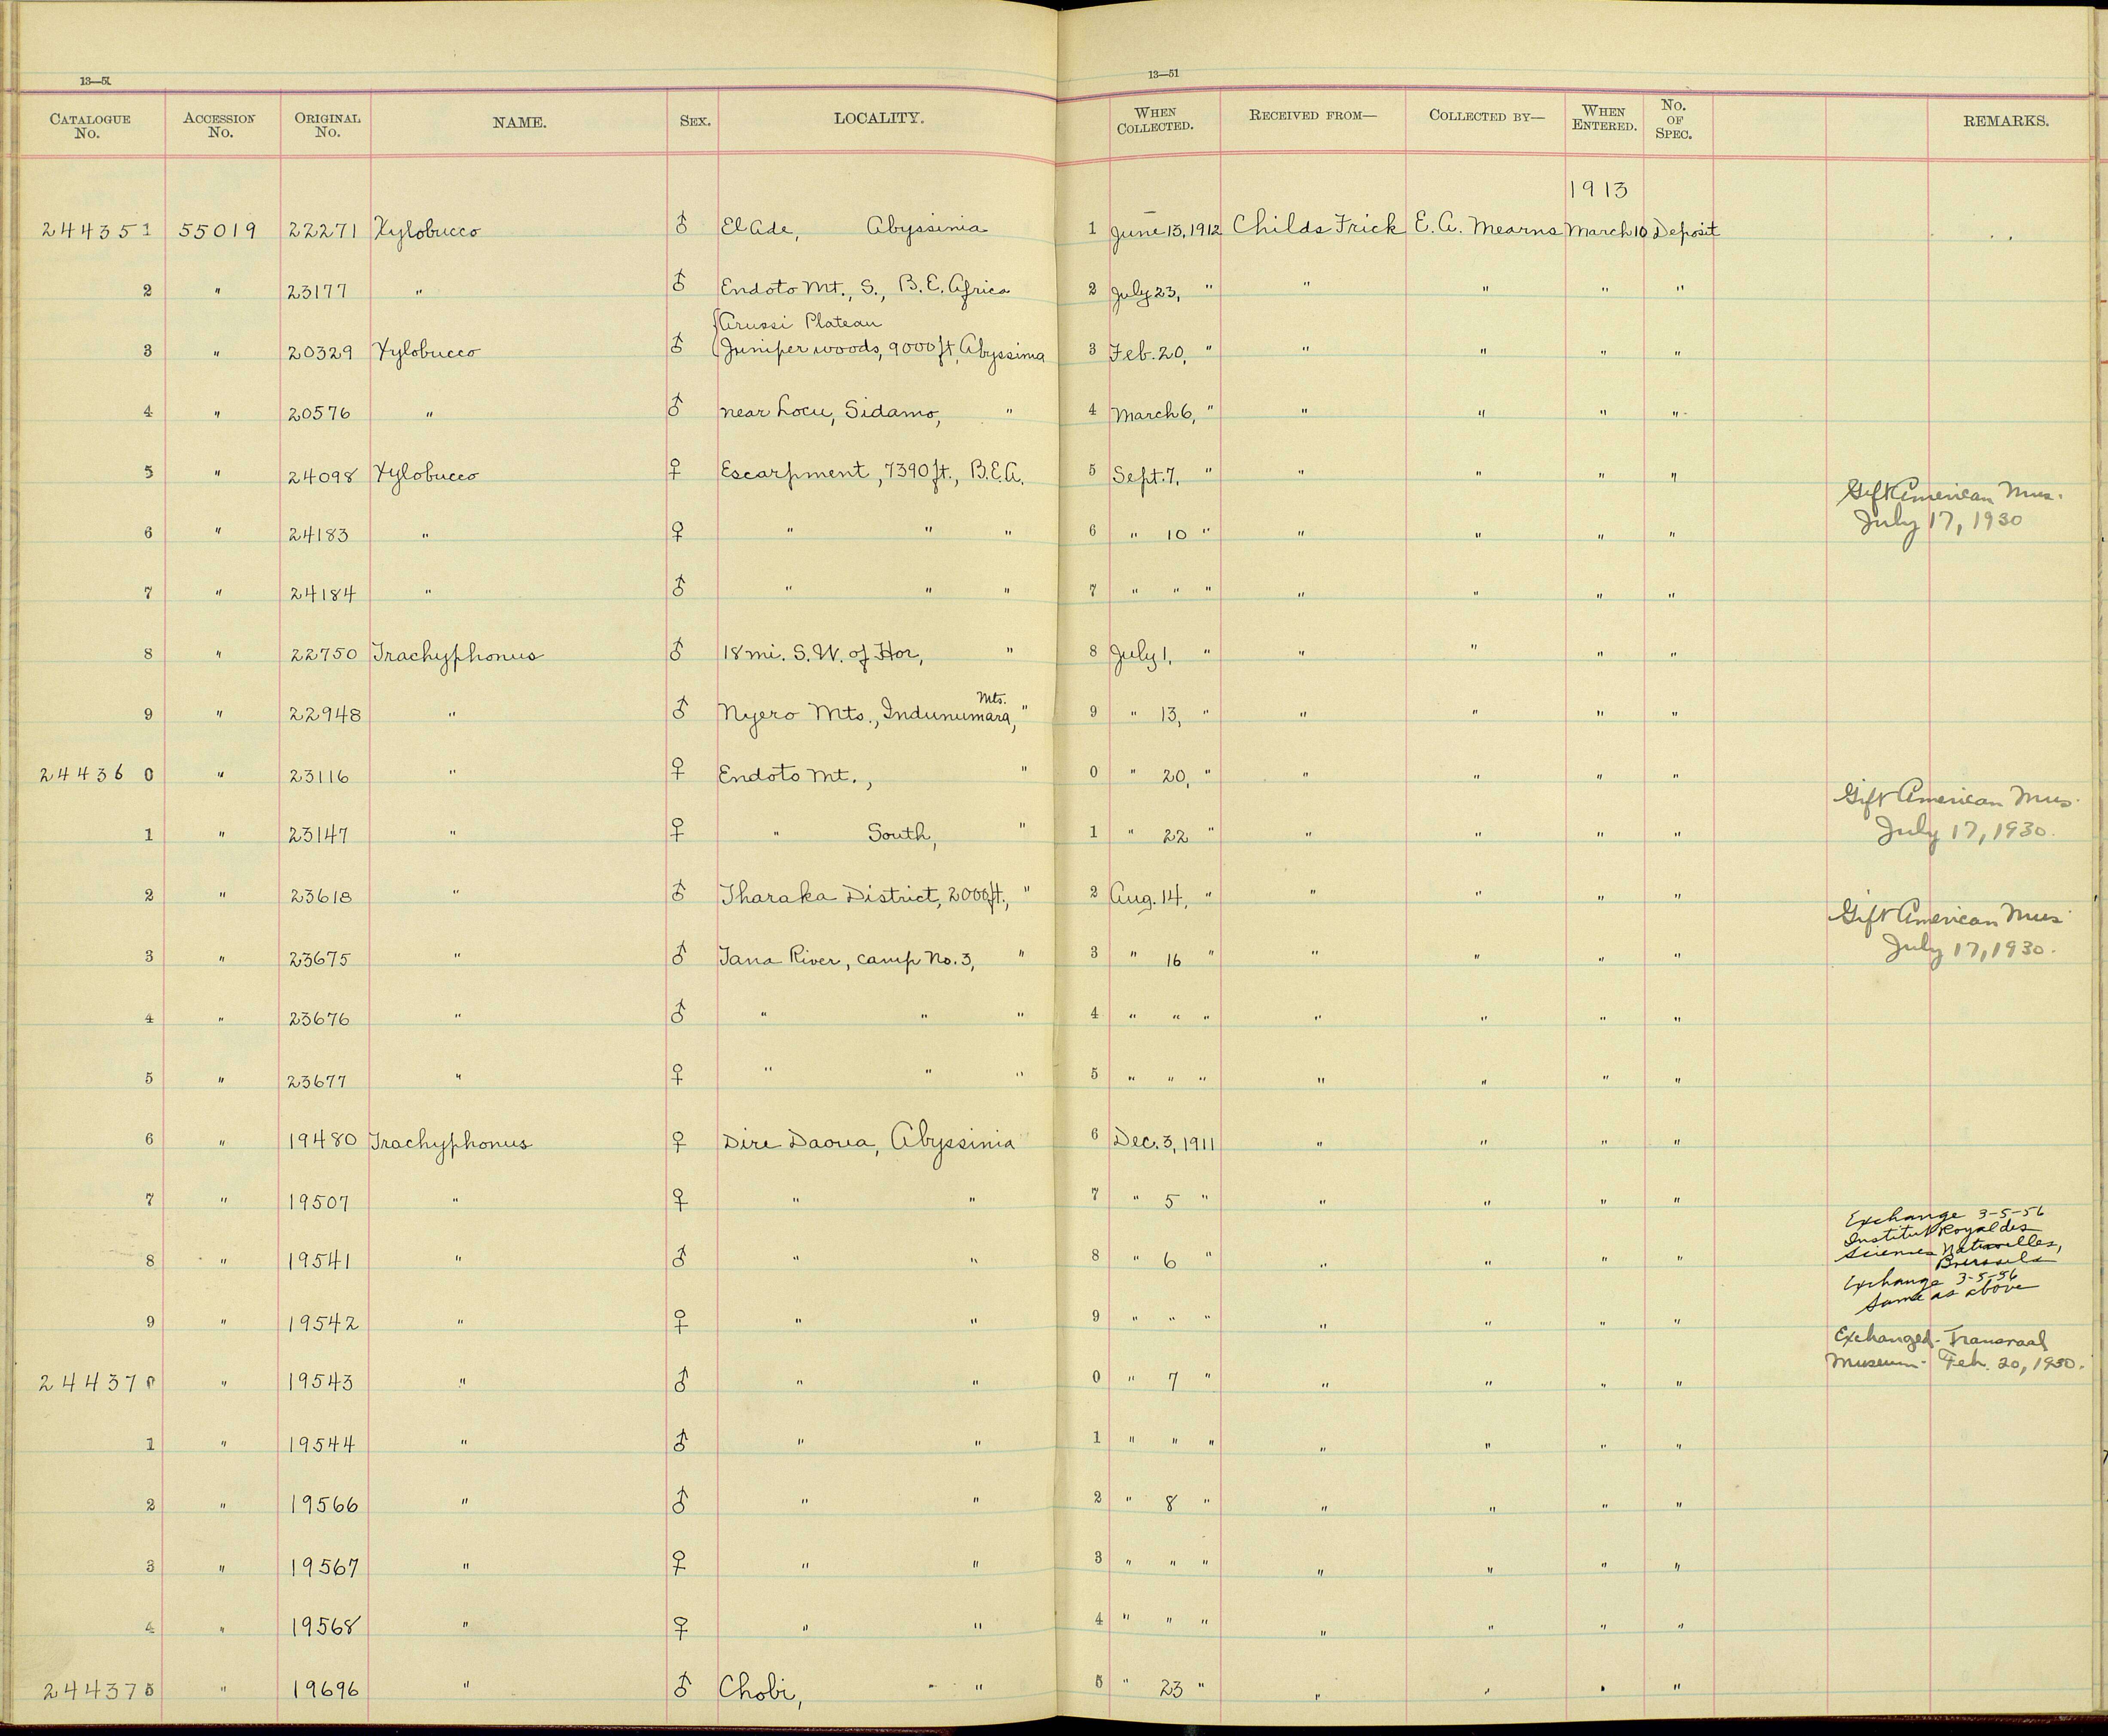 13—51
13—51
CATALOGUE No. ACCESSION No. ORIGINAL No. NAME. SEX. LOCALITY. WHEN COLLECTED. RECEIVED FROM— COLLECTED BY— WHEN ENTERED. No. OF SPEC. REMARKS.
1913
244351 55019 22271 Xylobucco ♂ El Ade, Abyssinia 1 June 13, 1912 Childs Frick E. A. Mearns March 10 Deposit
2 " 23177 " ♂ Endoto Mt., S., B. E. Africa 2 July 23, " " " " "
{Arussi Plateau
3 " 20329 Xylobucco ♂ Juniper woods, 9000 ft, Abyssinia 3 Feb. 20, " " " " "
4 " 20576 " ♂ near Locu, Sidamo, " 4 March 6, " " " " "
5 " 24098 Xylobucco ♀ Escarpment, 7390 ft., B.E.A. 5 Sept. 7, " " " " "
Gift American Mus.
July 17, 1930
6 " 24183 " ♀ " " " 6 " 10 " " " " "
7 " 24184 " ♂ " " " 7 " " " " " " "
8 " 22750 Trachyphonus ♂ 18 mi. S. W. of Hor, " 8 July 1, " " " " "
9 " 22948 " ♂ Nyero Mts., Indunumara Mts., " 9 " 13, " " " " "
244360 " 23116 " ♀ Endoto Mt., " 0 " 20, " " " " "
Gift American Mus.
July 17, 1930.
1 " 23147 " ♀ " South, " 1 " 22 " " " " "
2 " 23618 " ♂ Tharaka District, 2000 ft., " 2 Aug. 14, " " " " "
Gift American Mus
July 17, 1930.
3 " 23675 " ♂ Tana River, camp No. 3, " 3 " 16 " " " " "
4 " 23676 " ♂ " " " 4 " " " " " " "
5 " 23677 " ♀ " " " 5 " " " " " " "
6 " 19480 Trachyphonus ♀ Dire Daoua, Abyssinia 6 Dec. 3, 1911 " " " "
7 " 19507 " ♀ " " 7 " 5 " " " " "
Exchange 3-5-56
Institut Royal des
Sciences Naturelles,
Brussels
8 " 19541 " ♂ " " 8 " 6 " " " " "
Exchange 3-5-56
Same as above
9 " 19542 " ♀ " " 9 " " " " " " "
Exchanged - Transvaal
Museum - Feb. 20, 1930.
244370 " 19543 " ♂ " " 0 " 7 " " " " "
1 " 19544 " ♂ " " 1 " " " " " " "
2 " 19566 " ♂ " " 2 " 8 " " " " "
3 " 19567 " ♀ " " 3 " " " " " " "
4 " 19568 " ♀ " " 4 " " " " " " "
244375 " 19696 " ♂ Chobi, " " 5 " 23 " " " " "